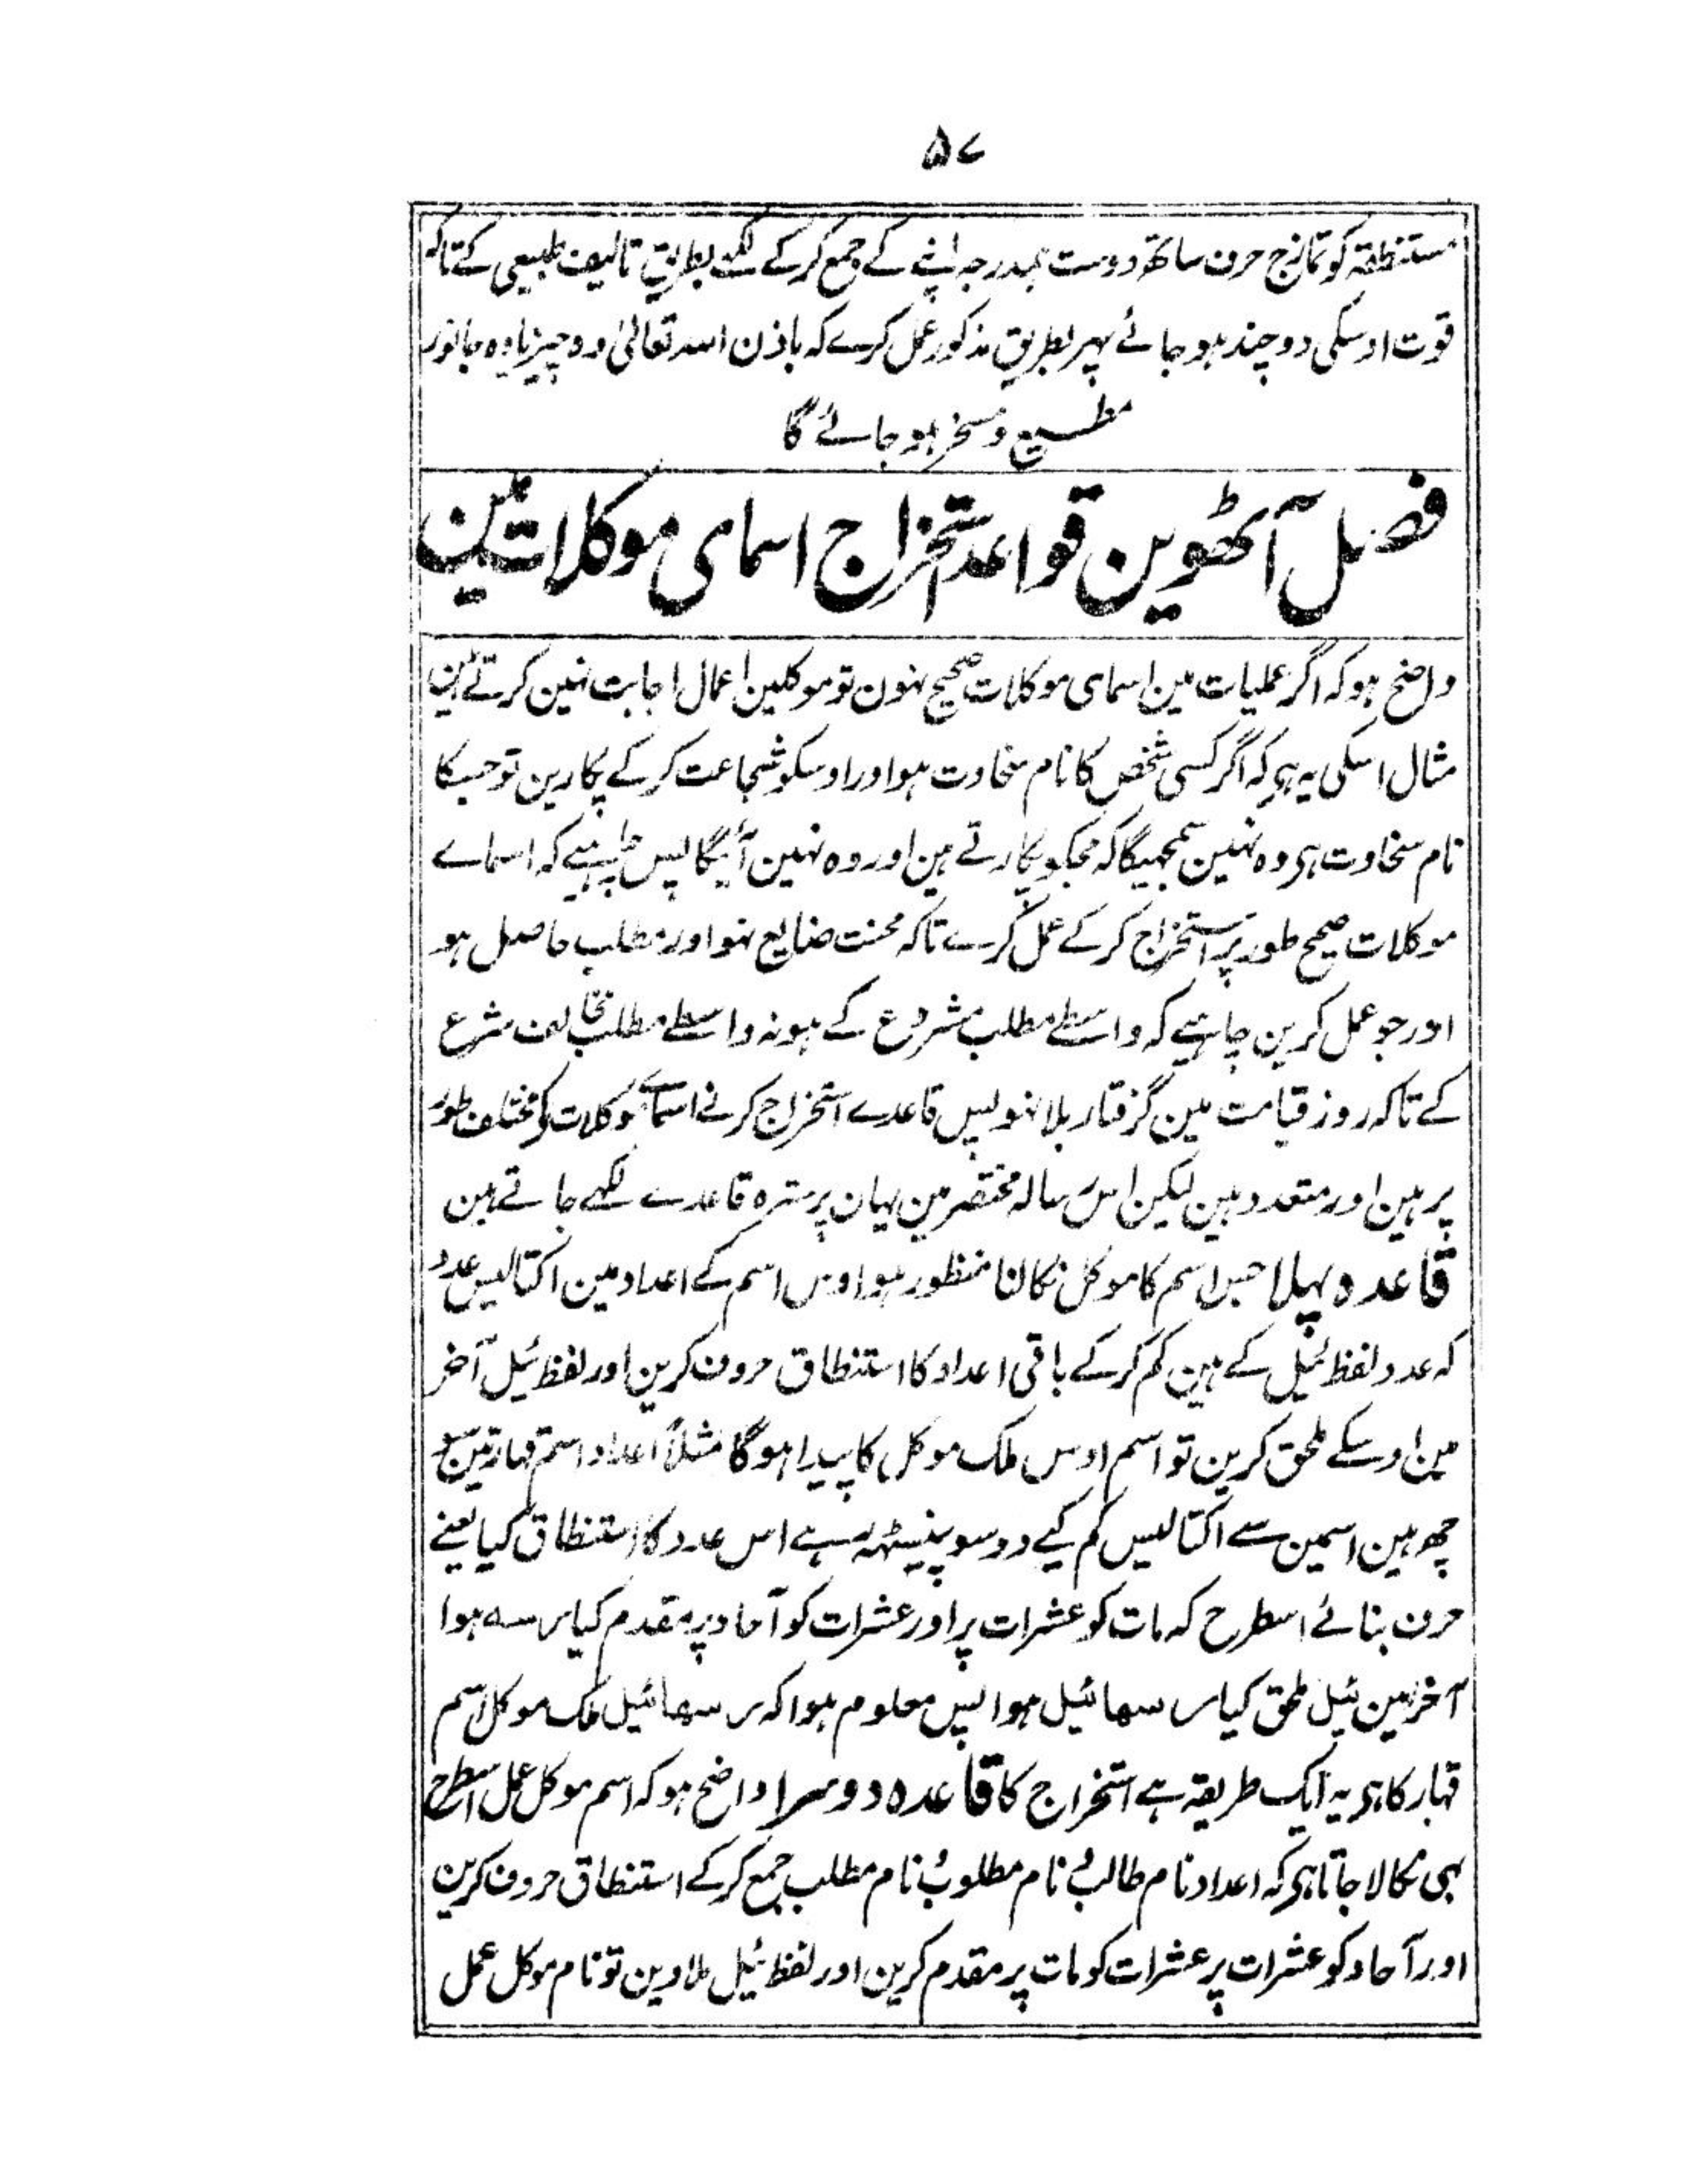 ۵۷
مستنطقہ کو تمازج حرف ساتھ دوست ہمدرجہ اپنے کے جمع کر کے لکھے بطریق تالیف طبیعی کے تاکہ
قوت اوسکی دو چند ہو جائے پہر بطریق مذکور عمل کرے کہ باذن اللہ تعالیٰ وہ چیز یا وہ جانور
مطیع و مسخر ہو جائے گا
فصل آٹھوین قواعد استخراج اسمای موکلات مین
واضح ہو کہ اگر عملیات مین اسمای موکلات صحیح نہون تو موکلین اعمال اجابت نہین کرتے ہین
مثال اسکی یہ ہی کہ اگر کسی شخص کا نام سخاوت ہو اور اوسکو شجاعت کر کے پکارین تو جسکا
نام سخاوت ہی وہ نہین سمجہیگا کہ مجکو پکارتے ہین اور وہ نہین آئیگا پس چاہیے کہ اسماے
موکلات صحیح طور پر استخراج کر کے عمل کرے تاکہ محنت ضایع نہو اور مطلب حاصل ہو
اور جو عمل کرین چاہیے کہ واسطے مطلب مشروع کے ہو نہ واسطے مطلب مخالف شرع
کے تاکہ روز قیامت مین گرفتار بلا نہو پس قاعدے استخراج کرنے اسمائے موکلات کو مختلف طور
پر ہین اور متعدد ہین لیکن اس رسالہ مختصر مین یہان پر سترہ قاعدے لکھے جاتے ہین
قاعدہ پہلا جس اسم کا موکل نکالنا منظور ہو اوس اسم کے اعداد مین اکتالیس عدد
کہ عدد لفظ ئیل کے ہین کم کر کے باقی اعداد کا استنطاق حروف کرین اور لفظ ئیل آخر
مین اوسکے ملحق کرین تو اسم اوس ملک موکل کا پیدا ہو گا مثلاً اعداد اسم قہار تین سو
چھ ہین اسمین سے اکتالیس کم کیے دو سو پینسٹہہ رہے اس عدد کا استنطاق کیا یعنے
حرف بنائے اسطرح کہ مات کو عشرات پر اور عشرات کو آحاد پر مقدم کیا رسہ ہوا
آخر مین ئیل ملحق کیا رسھائیل ہوا پس معلوم ہوا کہ رسھائیل ملک موکل اسم
قہار کا ہی یہ ایک طریقہ ہے استخراج کا قاعدہ دوسرا واضح ہو کہ اسم موکل عمل اسطرح
بہی نکالا جاتا ہی کہ اعداد نام طالب و نام مطلوب و نام مطلب جمع کر کے استنطاق حروف کرین
اور آحاد کو عشرات پر عشرات کو مات پر مقدم کرین اور لفظ ئیل ملاوین تو نام موکل عمل